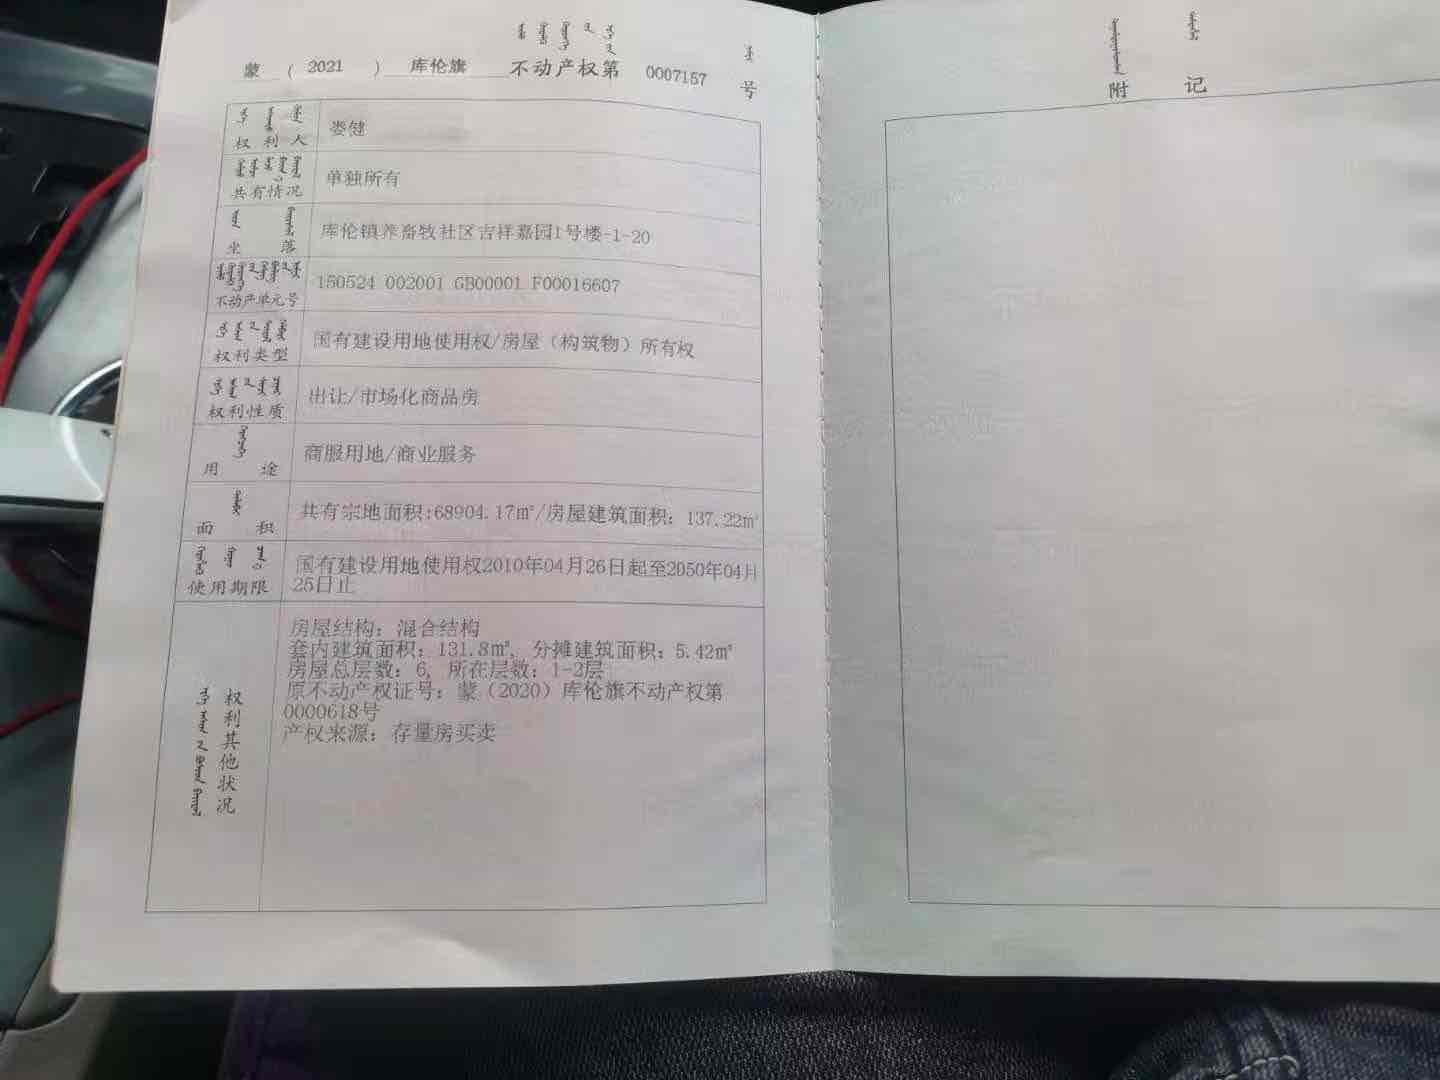 蒙 ( 2021 ) 库伦旗 不动产权第 0007157 号
权利人 娄健
共有情况 单独所有
坐落 库伦镇养畜牧社区吉祥嘉园1号楼-1-20
不动产单元号 150524 002001 GB00001 F00016607
权利类型 国有建设用地使用权/房屋（构筑物）所有权
权利性质 出让/市场化商品房
用途 商服用地/商业服务
面积 共有宗地面积:68904.17㎡/房屋建筑面积：137.22㎡
使用期限 国有建设用地使用权2010年04月26日起至2050年04月
25日止
权利其他状况
房屋结构：混合结构
套内建筑面积：131.8㎡，分摊建筑面积：5.42㎡
房屋总层数：6，所在层数：1-2层
原不动产权证号：蒙（2020）库伦旗不动产权第
0000618号
产权来源：存量房买卖
附记